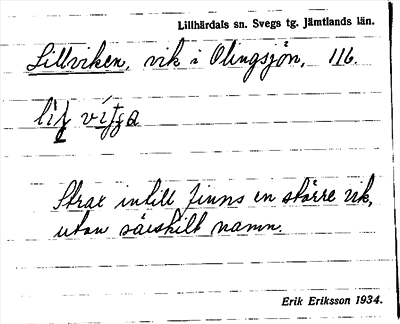 Lillhärdals sn. Svegs tg. Jämtlands län.
Lillviken, vik i Olingsjön, 116.
Strax intill finns en större vik,
utan särskilt namn.
Erik Eriksson 1934.